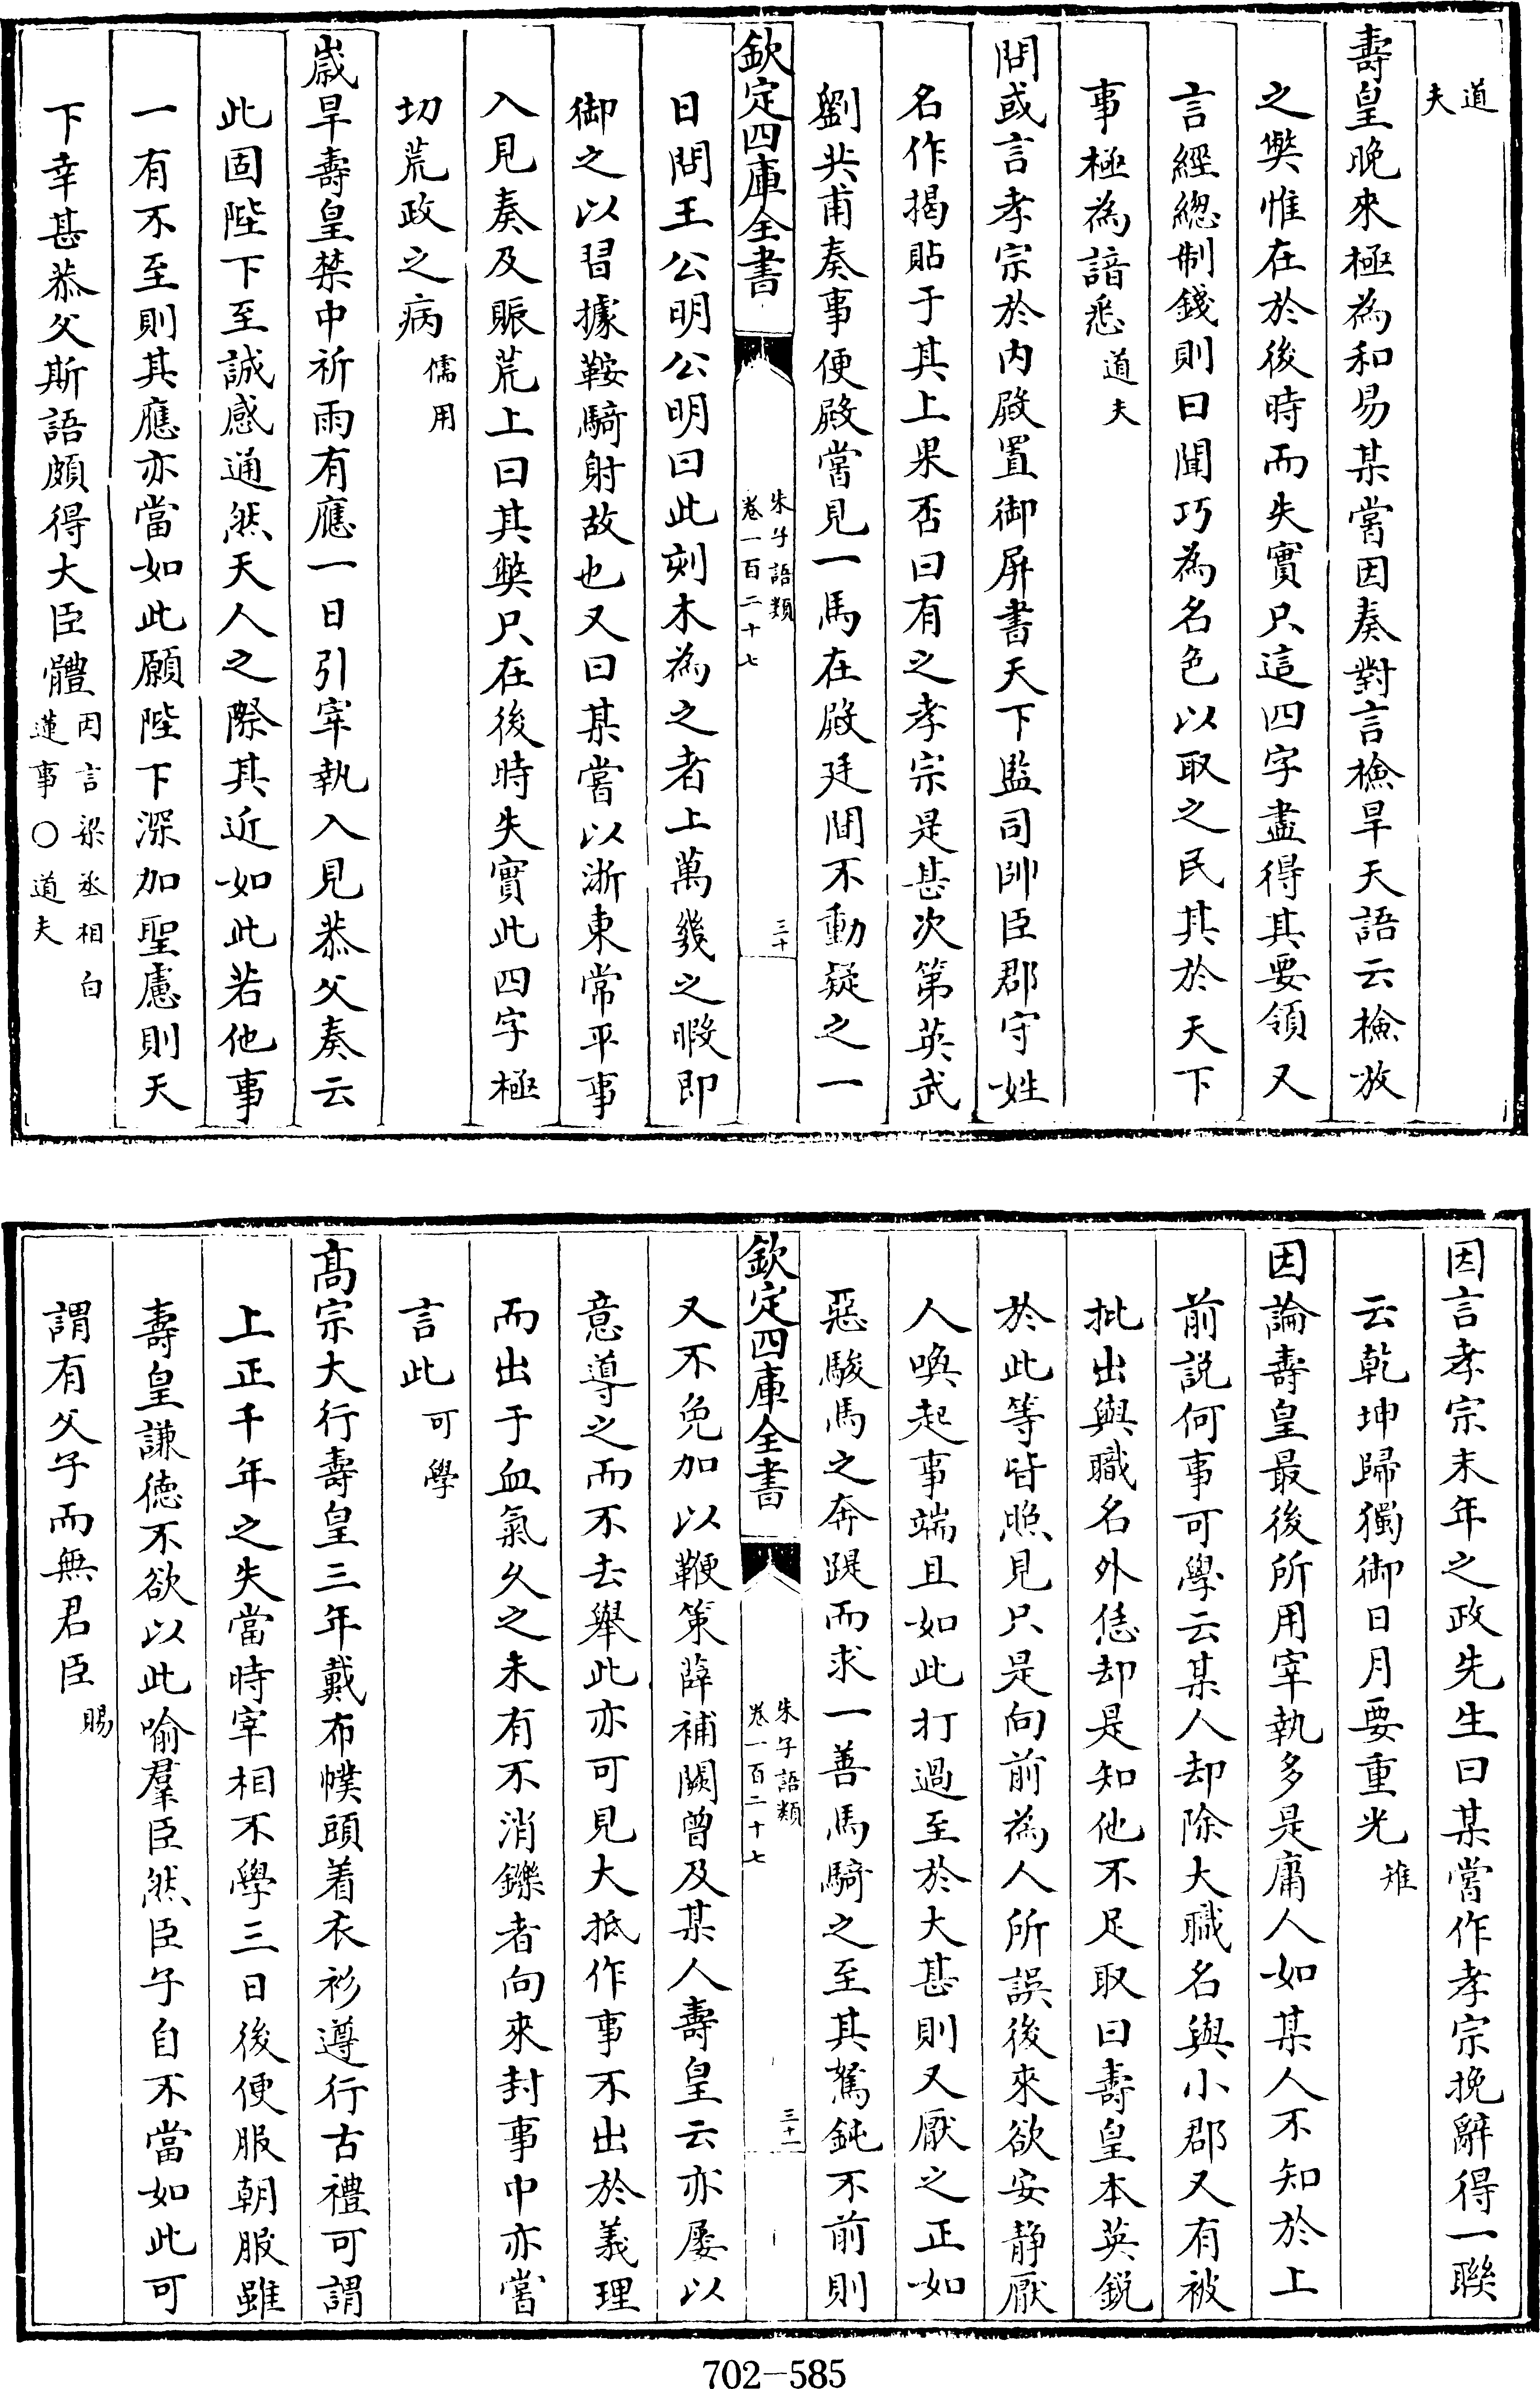 道夫
壽皇晚來極為和易某嘗因奏對言檢旱天語云檢放
之弊惟在於後時而失實只這四字盡得其要領又
言經緫制錢則曰聞巧為名色以取之民其於天下
事極為諳悉道夫
問或言孝宗於內殿置御屏書天下監司帥臣郡守姓
名作揭貼于其上果否曰有之孝宗是甚次第英武
劉共甫奏事便殿嘗見一馬在殿廷間不動疑之一
欽定四庫全書
朱子語類
卷一百二十七
三十
日問王公明公明曰此刻木為之者上萬幾之暇即
御之以習據鞍騎射故也又曰某嘗以浙東常平事
入見奏及賑荒上曰其弊只在後時失實此四字極
切荒政之病儒用
嵗旱壽皇禁中祈雨有應一日引宰執入見恭父奏云
此固陛下至誠感通然天人之際其近如此若他事
一有不至則其應亦當如此願陛下深加聖慮則天
下幸甚恭父斯語頗得大臣體因言梁丞相白
蓮事○道夫
因言孝宗末年之政先生曰某嘗作孝宗挽辭得一聯
云乾坤歸獨御日月要重光雉
因論壽皇最後所用宰執多是庸人如某人不知於上
前説何事可學云某人却除大職名與小郡又有被
批出與職名外恁却是知他不足取曰壽皇本英銳
於此等皆照見只是向前為人所誤後來欲安靜厭
人喚起事端且如此打過至於大甚則又厭之正如
惡駿馬之奔踶而求一善馬騎之至其駑鈍不前則
欽定四庫全書
朱子語類
卷一百二十七
三十一
又不免加以鞭策薛補闕曾及某人壽皇云亦屢以
意導之而不去舉此亦可見大抵作事不出於義理
而出于血氣久之未有不消鑠者向來封事中亦嘗
言此可學
髙宗大行壽皇三年戴布幞頭着衣衫遵行古禮可謂
上正千年之失當時宰相不學三日後便服朝服雖
壽皇謙徳不欲以此喻羣臣然臣子自不當如此可
謂有父子而無君臣賜
702-585